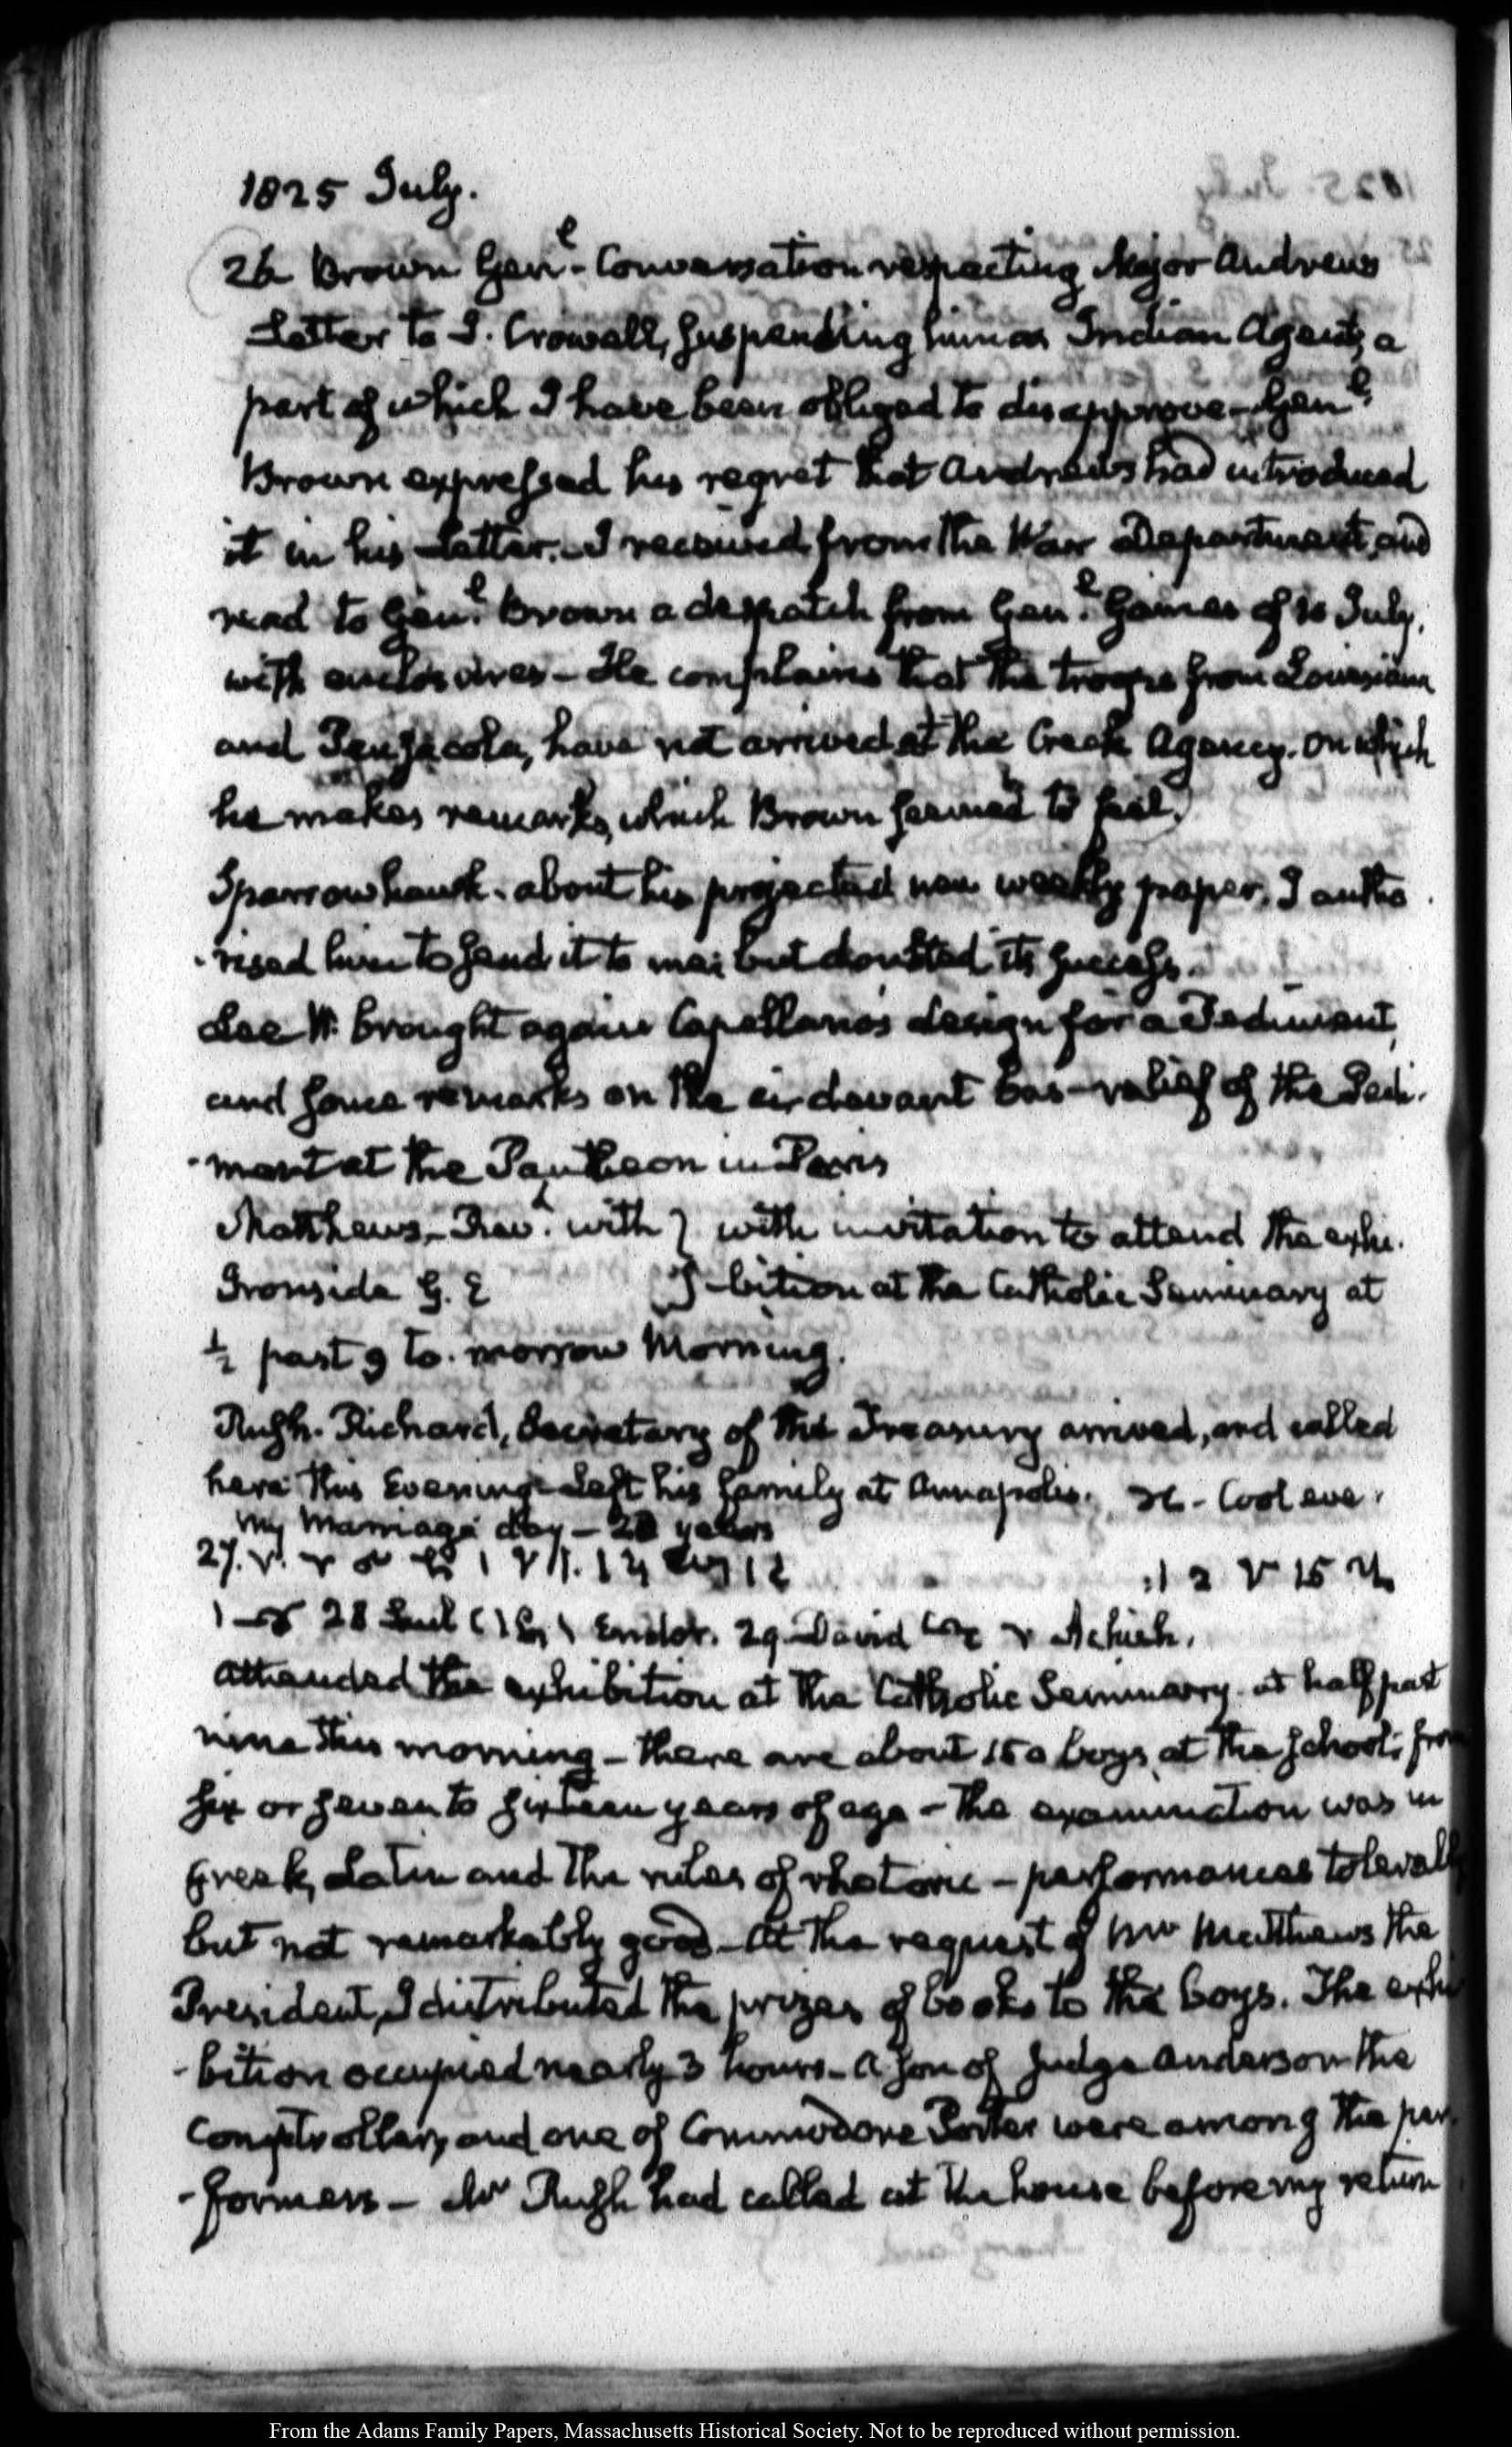 1825 July.
26 Brown Genl. - Conversation respecting Major Andrews
Letter to J. Crowell, suspending him as Indian Agent, a
part of which I have been obliged to disapprove - Genl.
Brown expressed his regret that Andrews had introduced
it in his Letter. - I received from the War Department, and
read to Genl. Brown a despatch from Genl. Gaines of 10 July,
with enclosures - He complains that the troops from Louisiana
and Pensacola, have not arrived at the Creek Agency. on which
he makes remarks, which Brown seemed to feel.
Sparrowhawk. about his projected new weekly paper. I autho
-rised him to send it to me; but doubted its success.
Lee W. brought again Capellano's design for a Pediment,
and some remarks on the ci-devant bas-relief of the Pedi-
-ment at the Pantheon in Paris
Matthews - Revd. with } with invitation to attend the exhi-
Ironside G. E } -bition at the Catholic Seminary at
½ past 9 to-morrow Morning.
Rush. Richard, Secretary of the Treasury arrived, and called
here this Evening - Left his family at Annapolis. - Cool eve.
My Marriage day - 28 years
27. V.
28 Saul Endor. 29. David Achish.
Attended the exhibition at the Catholic Seminary at half past
nine this morning - there are about 150 boys at the school; from
six or seven to sixteen years of age - The examination was in
Greek, Latin and the rules of rhetoric - performances tolerabl
but not remarkably good - At the request of Mr Matthews the
President, I distributed the prizes of books to the boys. The exhi
-bition occupied nearly 3 hours - A son of Judge Anderson the
Comptroller, and one of Commodore Porter were among the per
-formers - Mr Rush had called at the house before my return
From the Adams Family Papers, Massachusetts Historical Society. Not to be reproduced without permission.